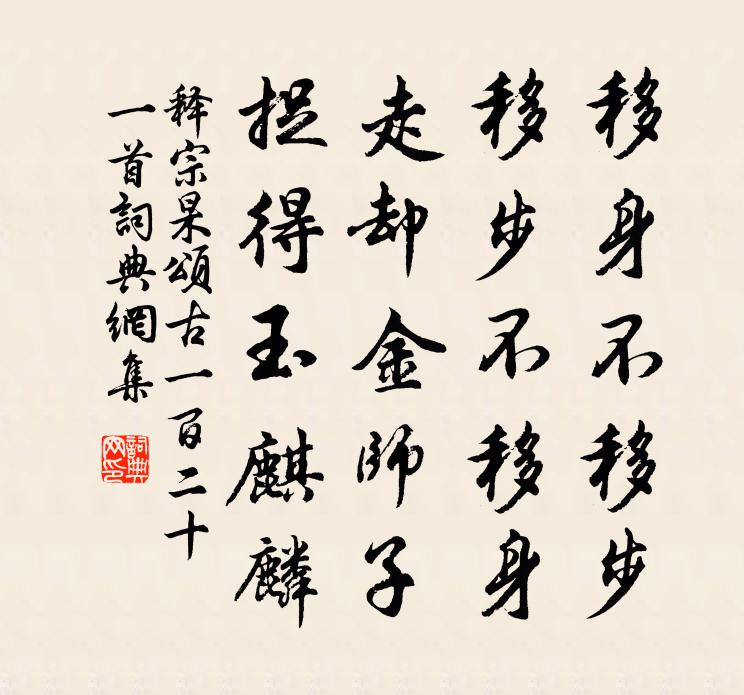 移身不移步
移步不移身
走却金師子
捉得玉麒麟
释宗杲頌古一百二十
一首詞典網集
詞典网印